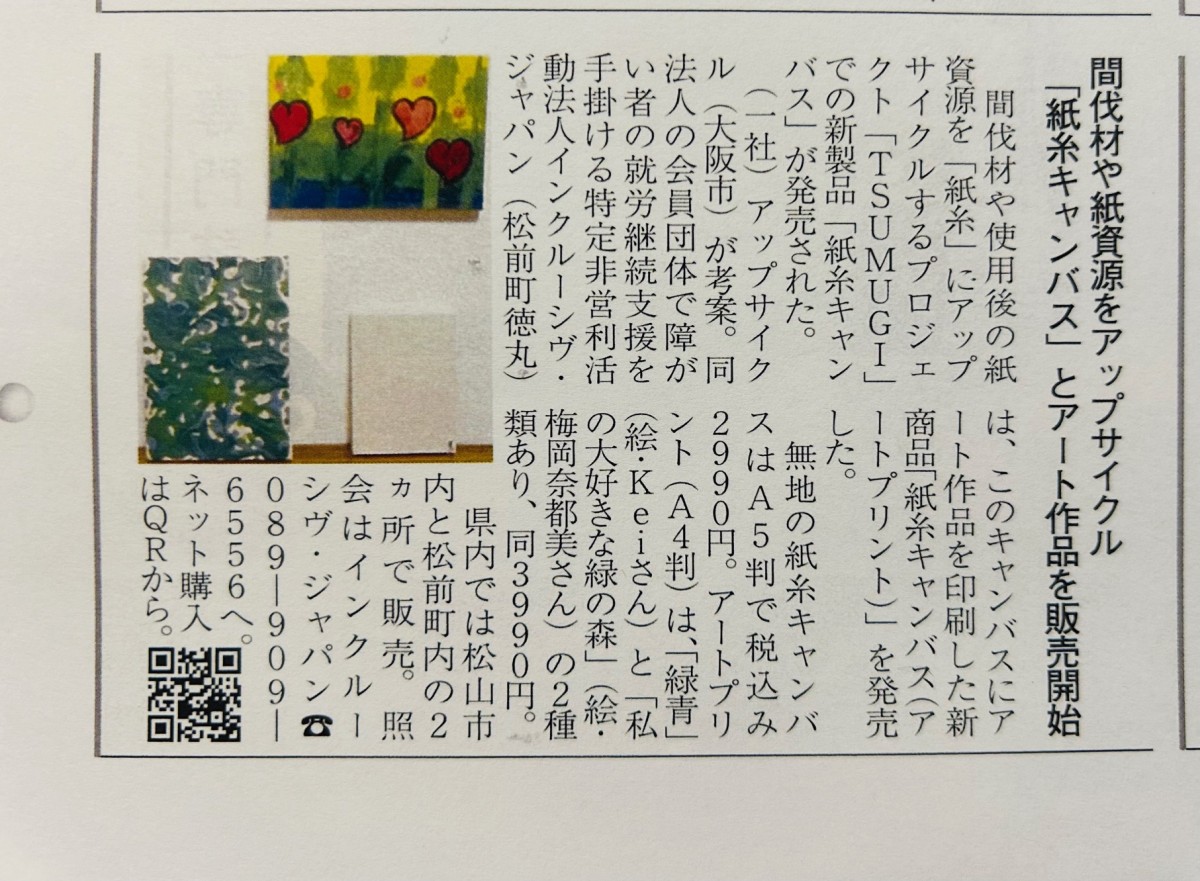 間伐材や紙資源をアップサイクル
「紙糸キャンバス」とアート作品を販売開始
間伐材や使用後の紙
資源を「紙糸」にアップ
サイクルするプロジェ
クト「TSUMUGI」
での新製品「紙糸キャン
バス」が発売された。
（一社）アップサイク
ル（大阪市）が考案。同
法人の会員団体で障が
い者の就労継続支援を
手掛ける特定非営利活
動法人インクルーシヴ・
ジャパン（松前町徳丸）
は、このキャンバスにア
ート作品を印刷した新
商品「紙糸キャンバス（ア
ートプリント）」を発売
した。
無地の紙糸キャンバ
スはA5判で税込み
2990円。アートプリ
ント（A4判）は、「緑青」
（絵・Keiさん）と「私
の大好きな緑の森」（絵・
梅岡奈都美さん）の2種
類あり、同3990円。
県内では松山市
内と松前町内の2
ヵ所で販売。照
会はインクルー
シヴ・ジャパン☎
089―909―
6556へ。
ネット購入
はQRから。